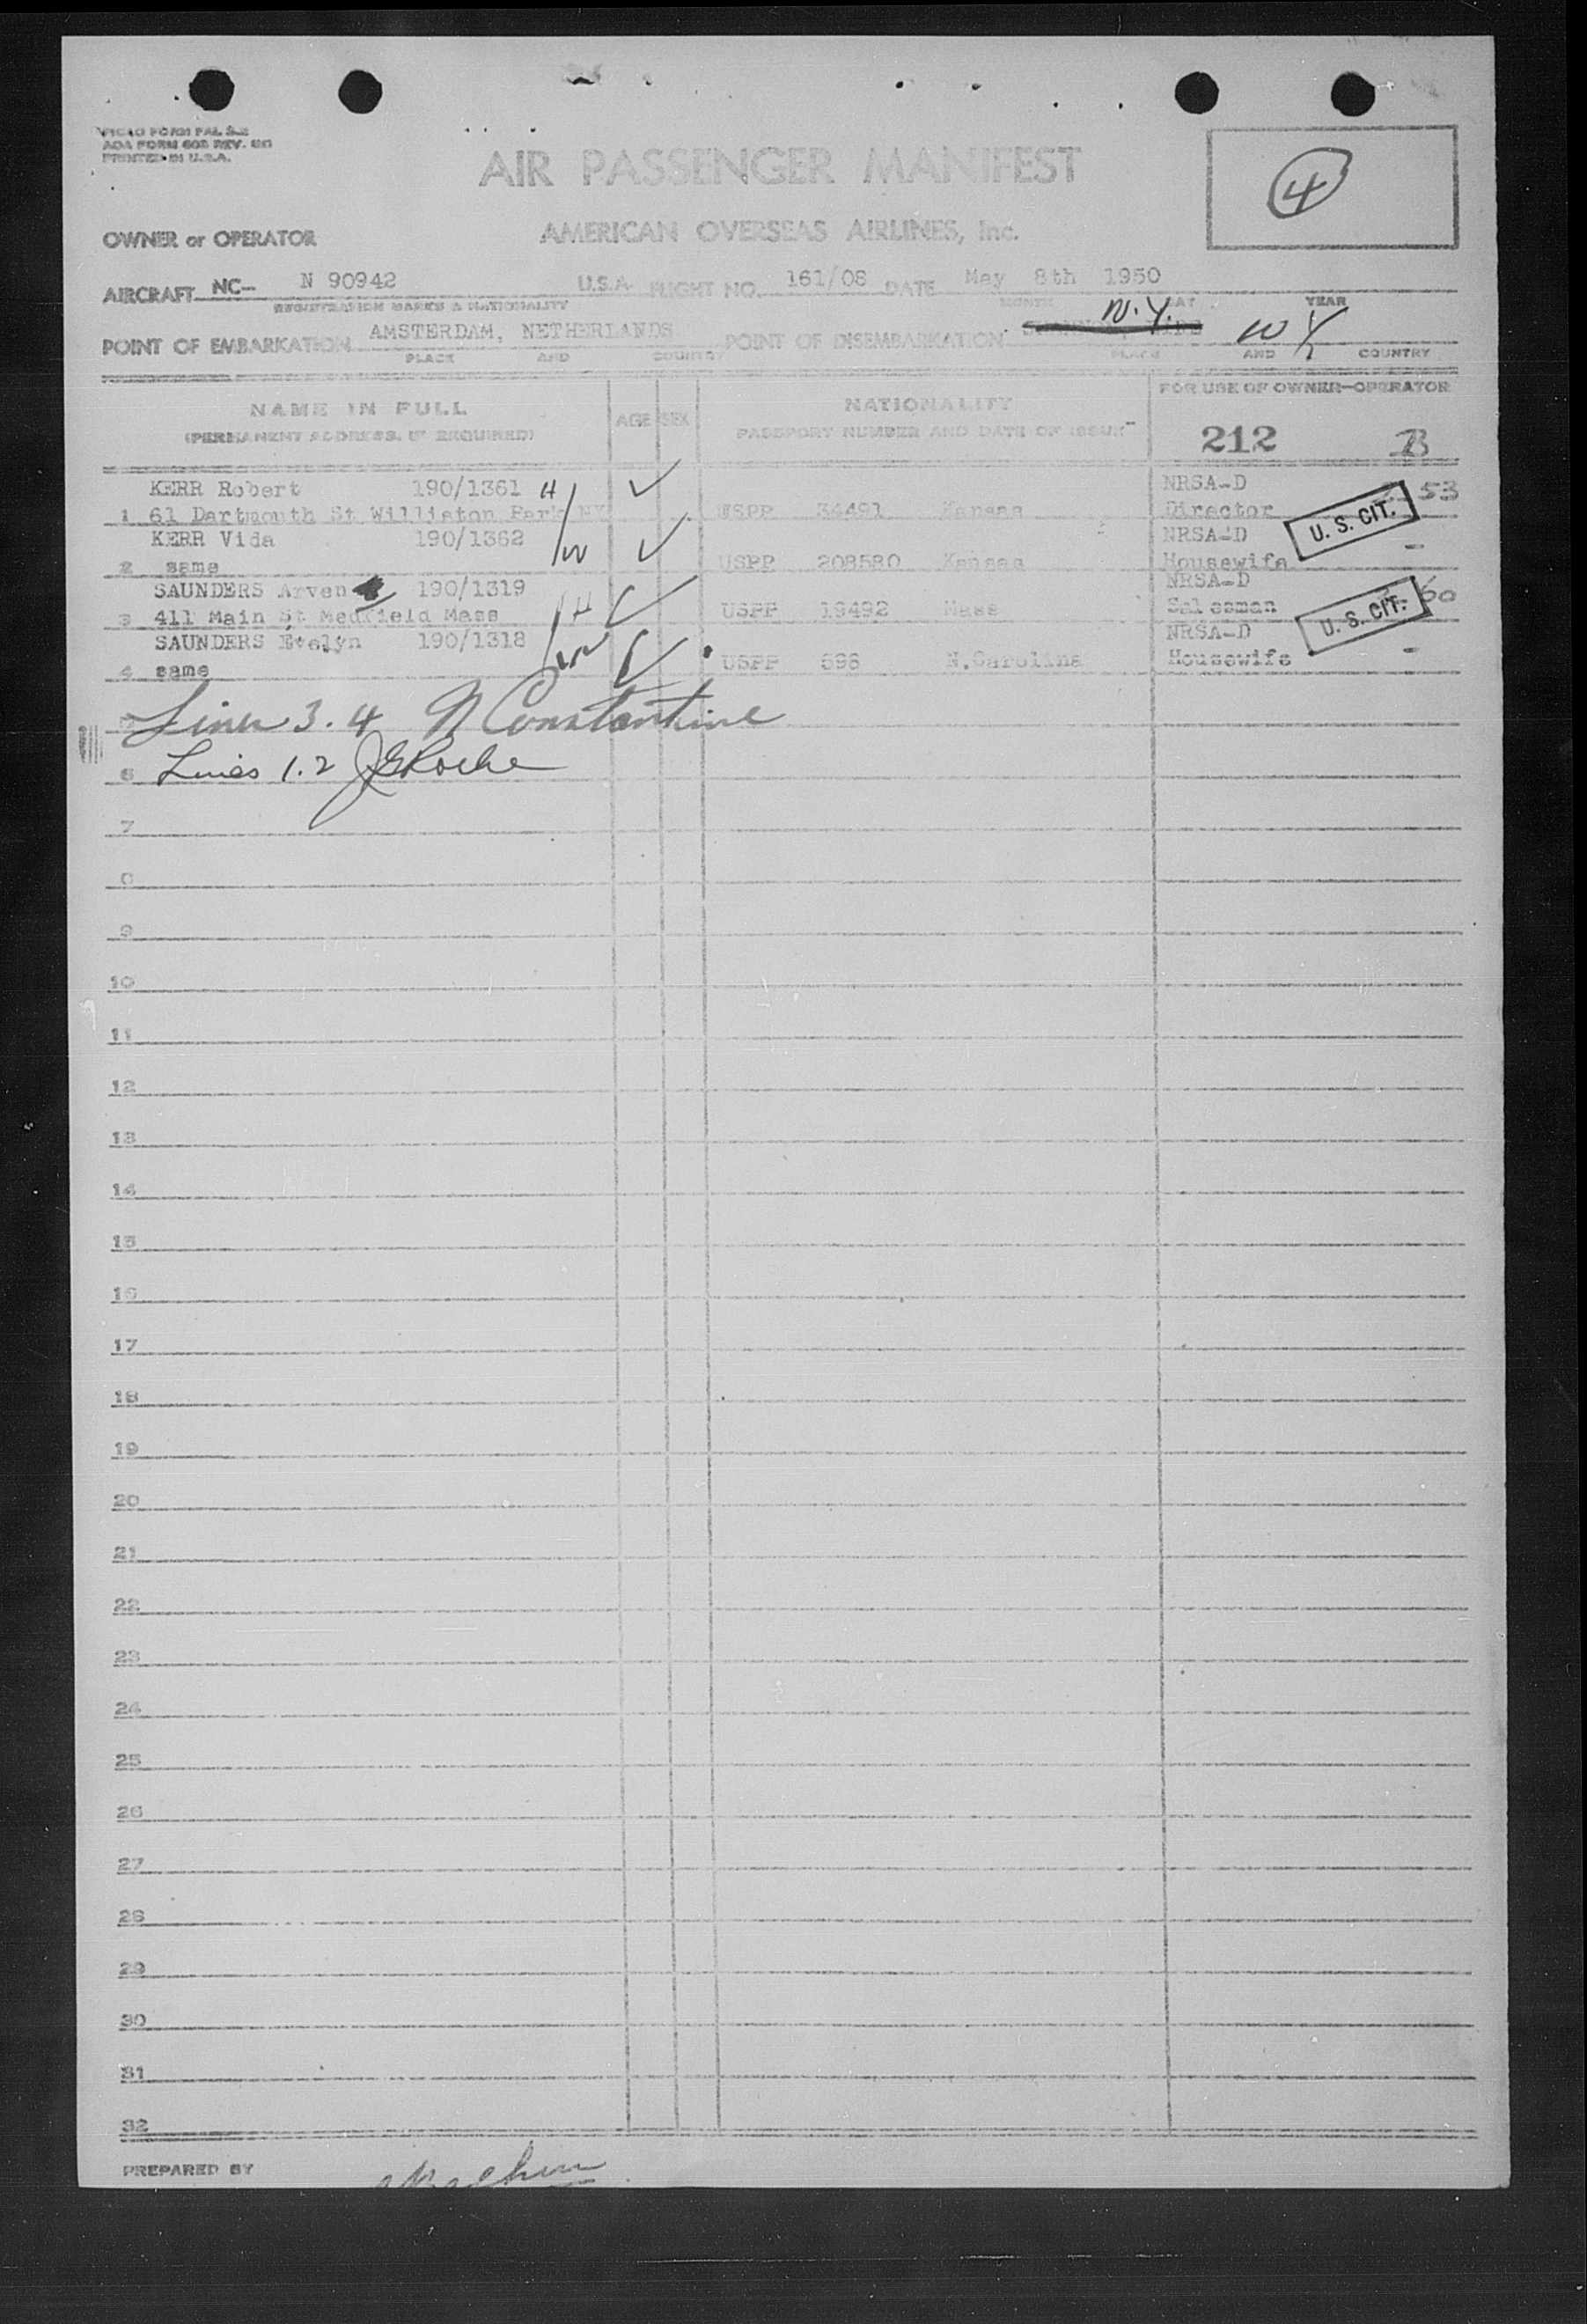 PICAO FORM FAL 2-2
AOA FORM 605 REV.
PRINTED IN U.S.A.
4
AIR PASSENGER MANIFEST
OWNER or OPERATOR AMERICAN OVERSEAS AIRLINES, Inc.
AIRCRAFT NC- N 90942 U.S.A. FLIGHT NO. 161/08 DATE May 8th 1950
REGISTRATION MARKS & NATIONALITY MONTH DAY YEAR
POINT OF EMBARKATION AMSTERDAM, NETHERLANDS POINT OF DISEMBARKATION N.Y. NY
PLACE AND COUNTRY PLACE AND COUNTRY
NAME IN FULL AGE SEX NATIONALITY FOR USE OF OWNER-OPERATOR
(PERMANENT ADDRESS, IF REQUIRED) PASSPORT NUMBER AND DATE OF ISSUE 212 B
KERR Robert 190/1361 H NRSA-D 53
1 61 Dartmouth St Williston Park NY USPP 34491 Kansas Director U. S. CIT.
KERR Vida 190/1362 W NRSA-D
2 same USPP 208580 Kansas Housewife -
SAUNDERS Arven 190/1319 NRSA-D
3 411 Main St Medfield Mass H USPP 19492 Mass Salesman U. S. CIT. 60
SAUNDERS Evelyn 190/1318 W NRSA-D
4 same USPP 596 N.Carolina Housewife -
5 Lines 3.4 N Constantine
6 Lines 1.2 JGRoche
7
8
9
10
11
12
13
14
15
16
17
18
19
20
21
22
23
24
25
26
27
28
29
30
31
32
PREPARED BY